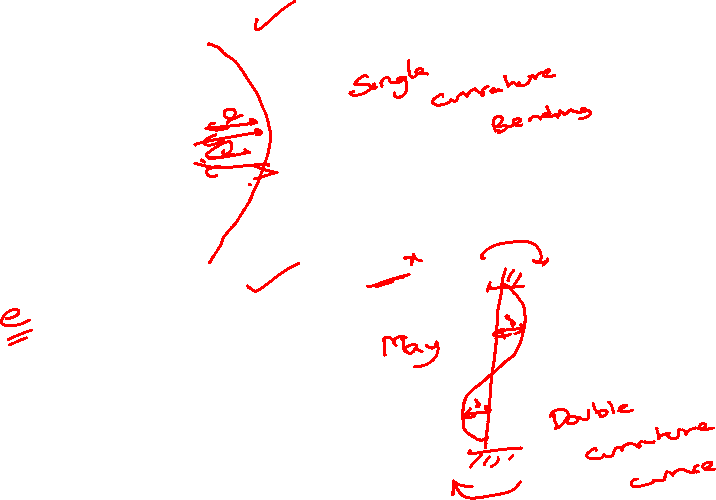 Single
curvature
Bending
e
May
Double
curvature
curve